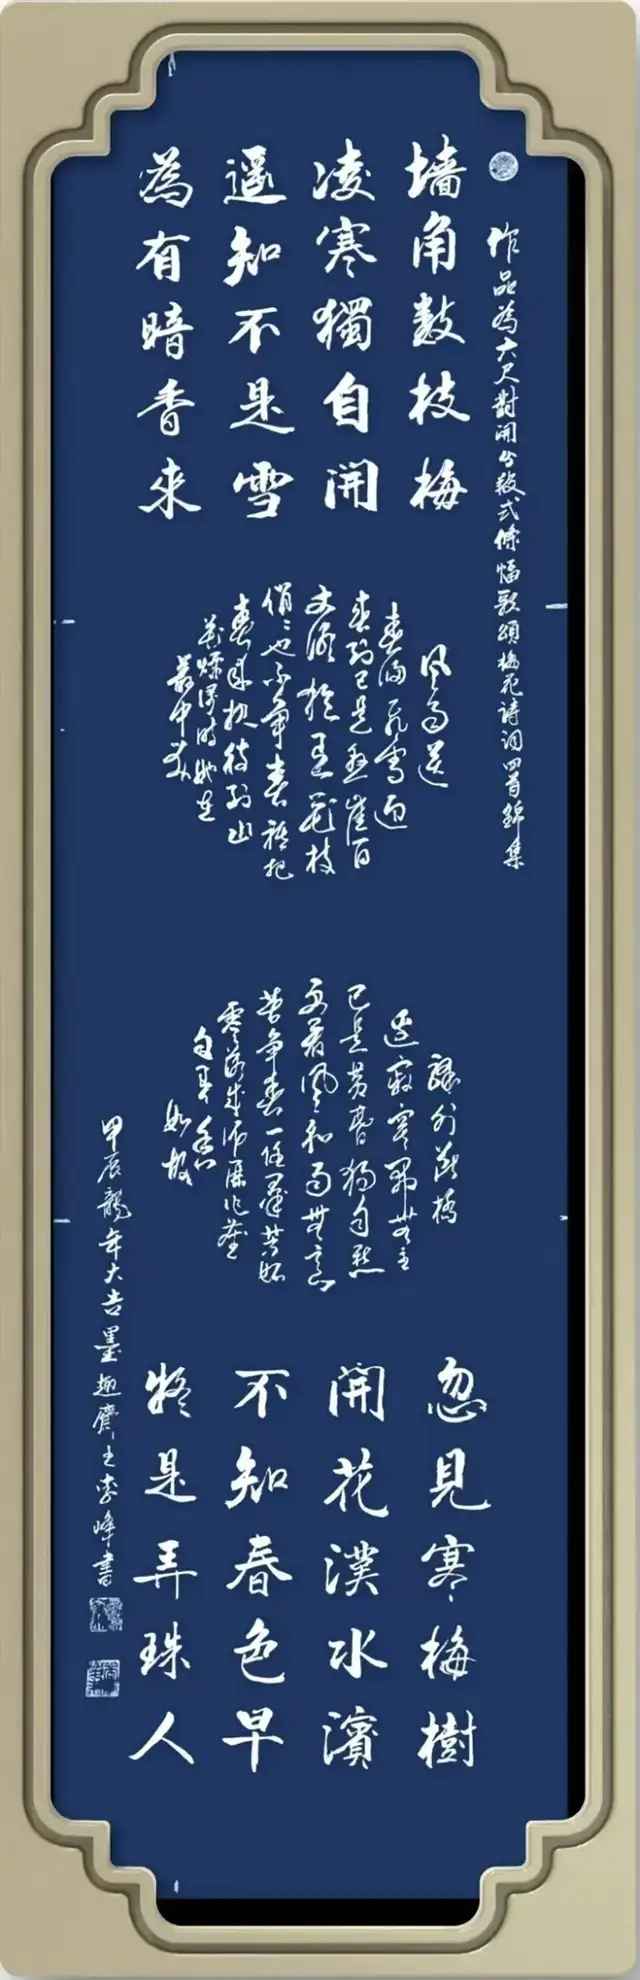 作品為六尺對開分散式條幅歌頌梅花詩詞四首錦集
墙角數枝梅
凌寒獨自開
遥知不是雪
為有暗香來
風雨送
春歸飛雪迎
春到已是懸崖百
丈冰猶花枝
俏俏也不爭春祗把
春來報待到山
花爛漫時她在
叢中笑
驛外斷橋
邊寂寞開無主
已是黄昏獨自愁
更著風和雨無意
苦爭春一任羣芳妒
零落成泥碾作塵
香
如故
忽見寒梅樹
開花漢水濱
不知春色早
疑是弄珠人
甲辰龍年大吉墨趣齋主李峰書